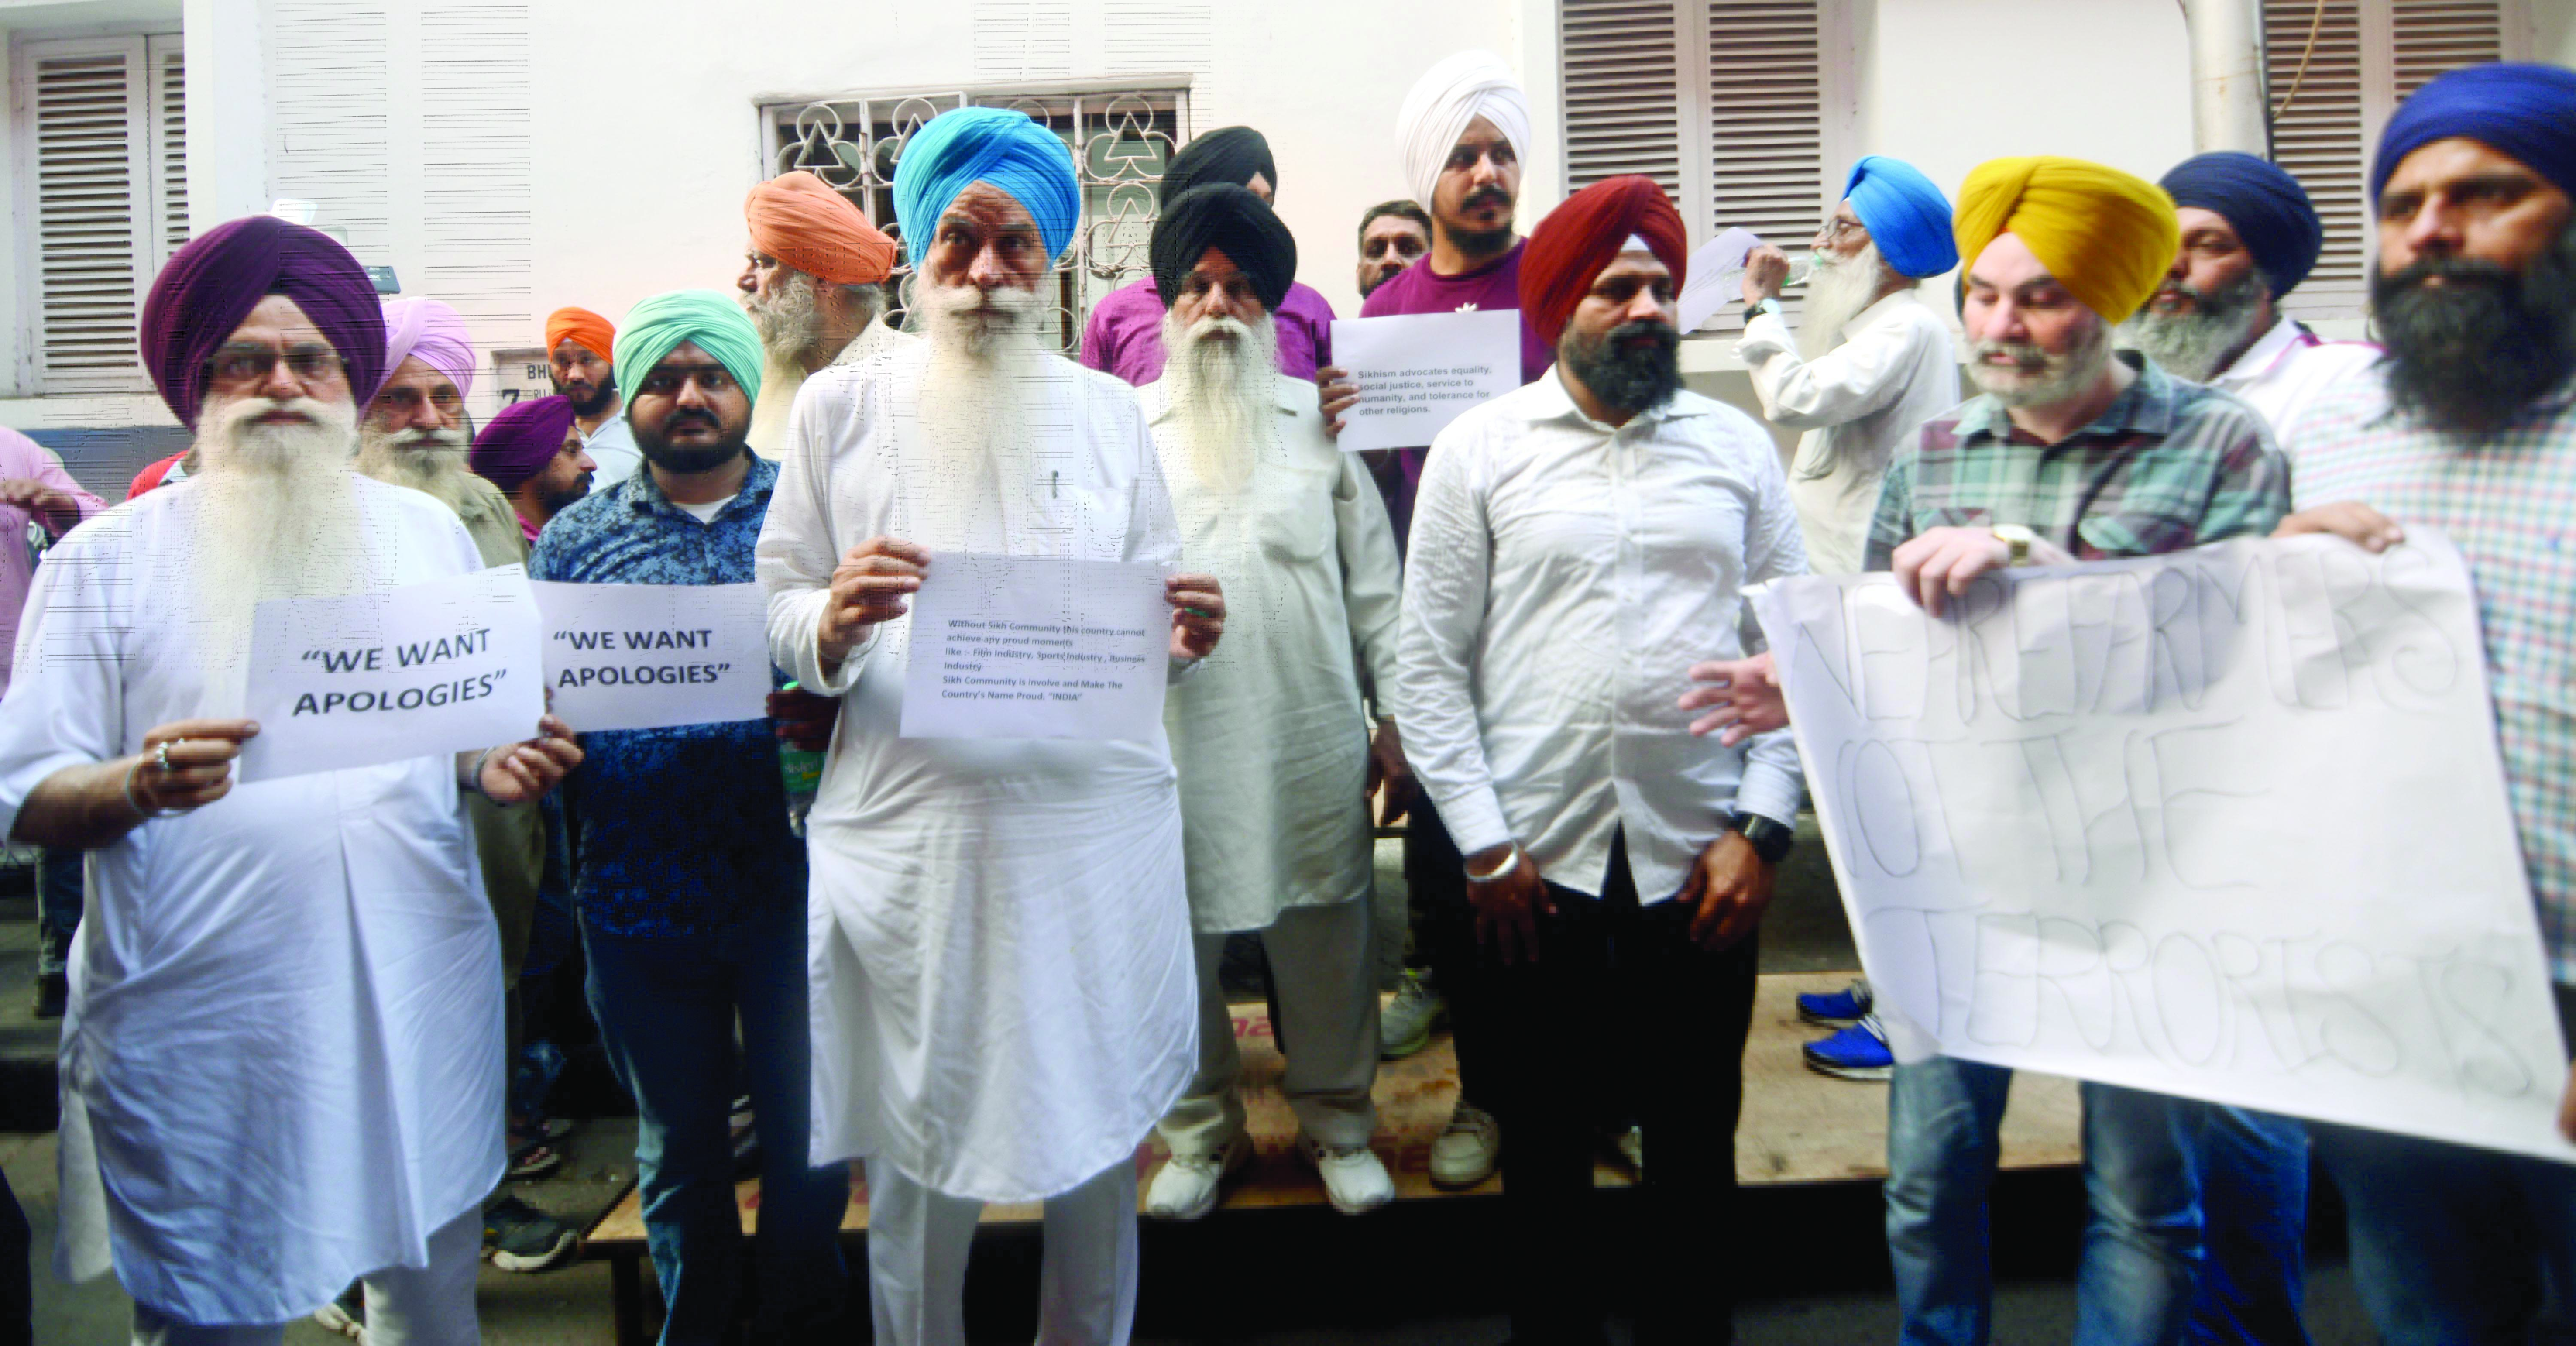 "WE WANT
APOLOGIES"
"WE WANT
APOLOGIES"
Without Sikh Community this country cannot
achieve any proud moments
like :- Film Industry, Sports Industry , Business
Industry
Sikh Community is involve and Make The
Country's Name Proud. "INDIA"
Sikhism advocates equality,
social justice, service to
humanity, and tolerance for
other religions.
WE ARE FARMERS
NOT THE
TERRORISTS
BH
7